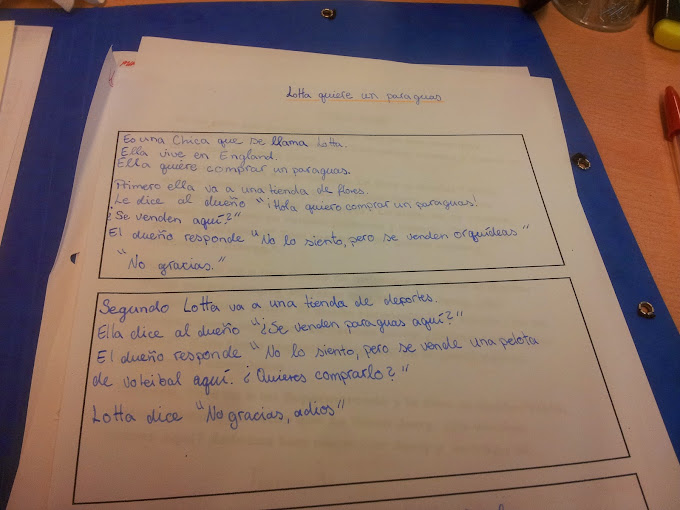 Lotta quiere un paraguas
Es una Chica que se llama Lotta.
Ella vive en England.
Ella quiere comprar un paraguas.
Primero ella va a una tienda de flores.
Le dice al dueño "¡Hola quiero comprar un paraguas!
¿Se venden aquí?"
El dueño responde "No lo siento, pero se venden orquídeas"
"No gracias."
Segundo Lotta va a una tienda de deportes.
Ella dice al dueño "¿Se venden paraguas aquí?"
El dueño responde "No lo siento, pero se vende una pelota
de voleibal aquí. ¿Quieres comprarlo?"
Lotta dice "No gracias, adios"